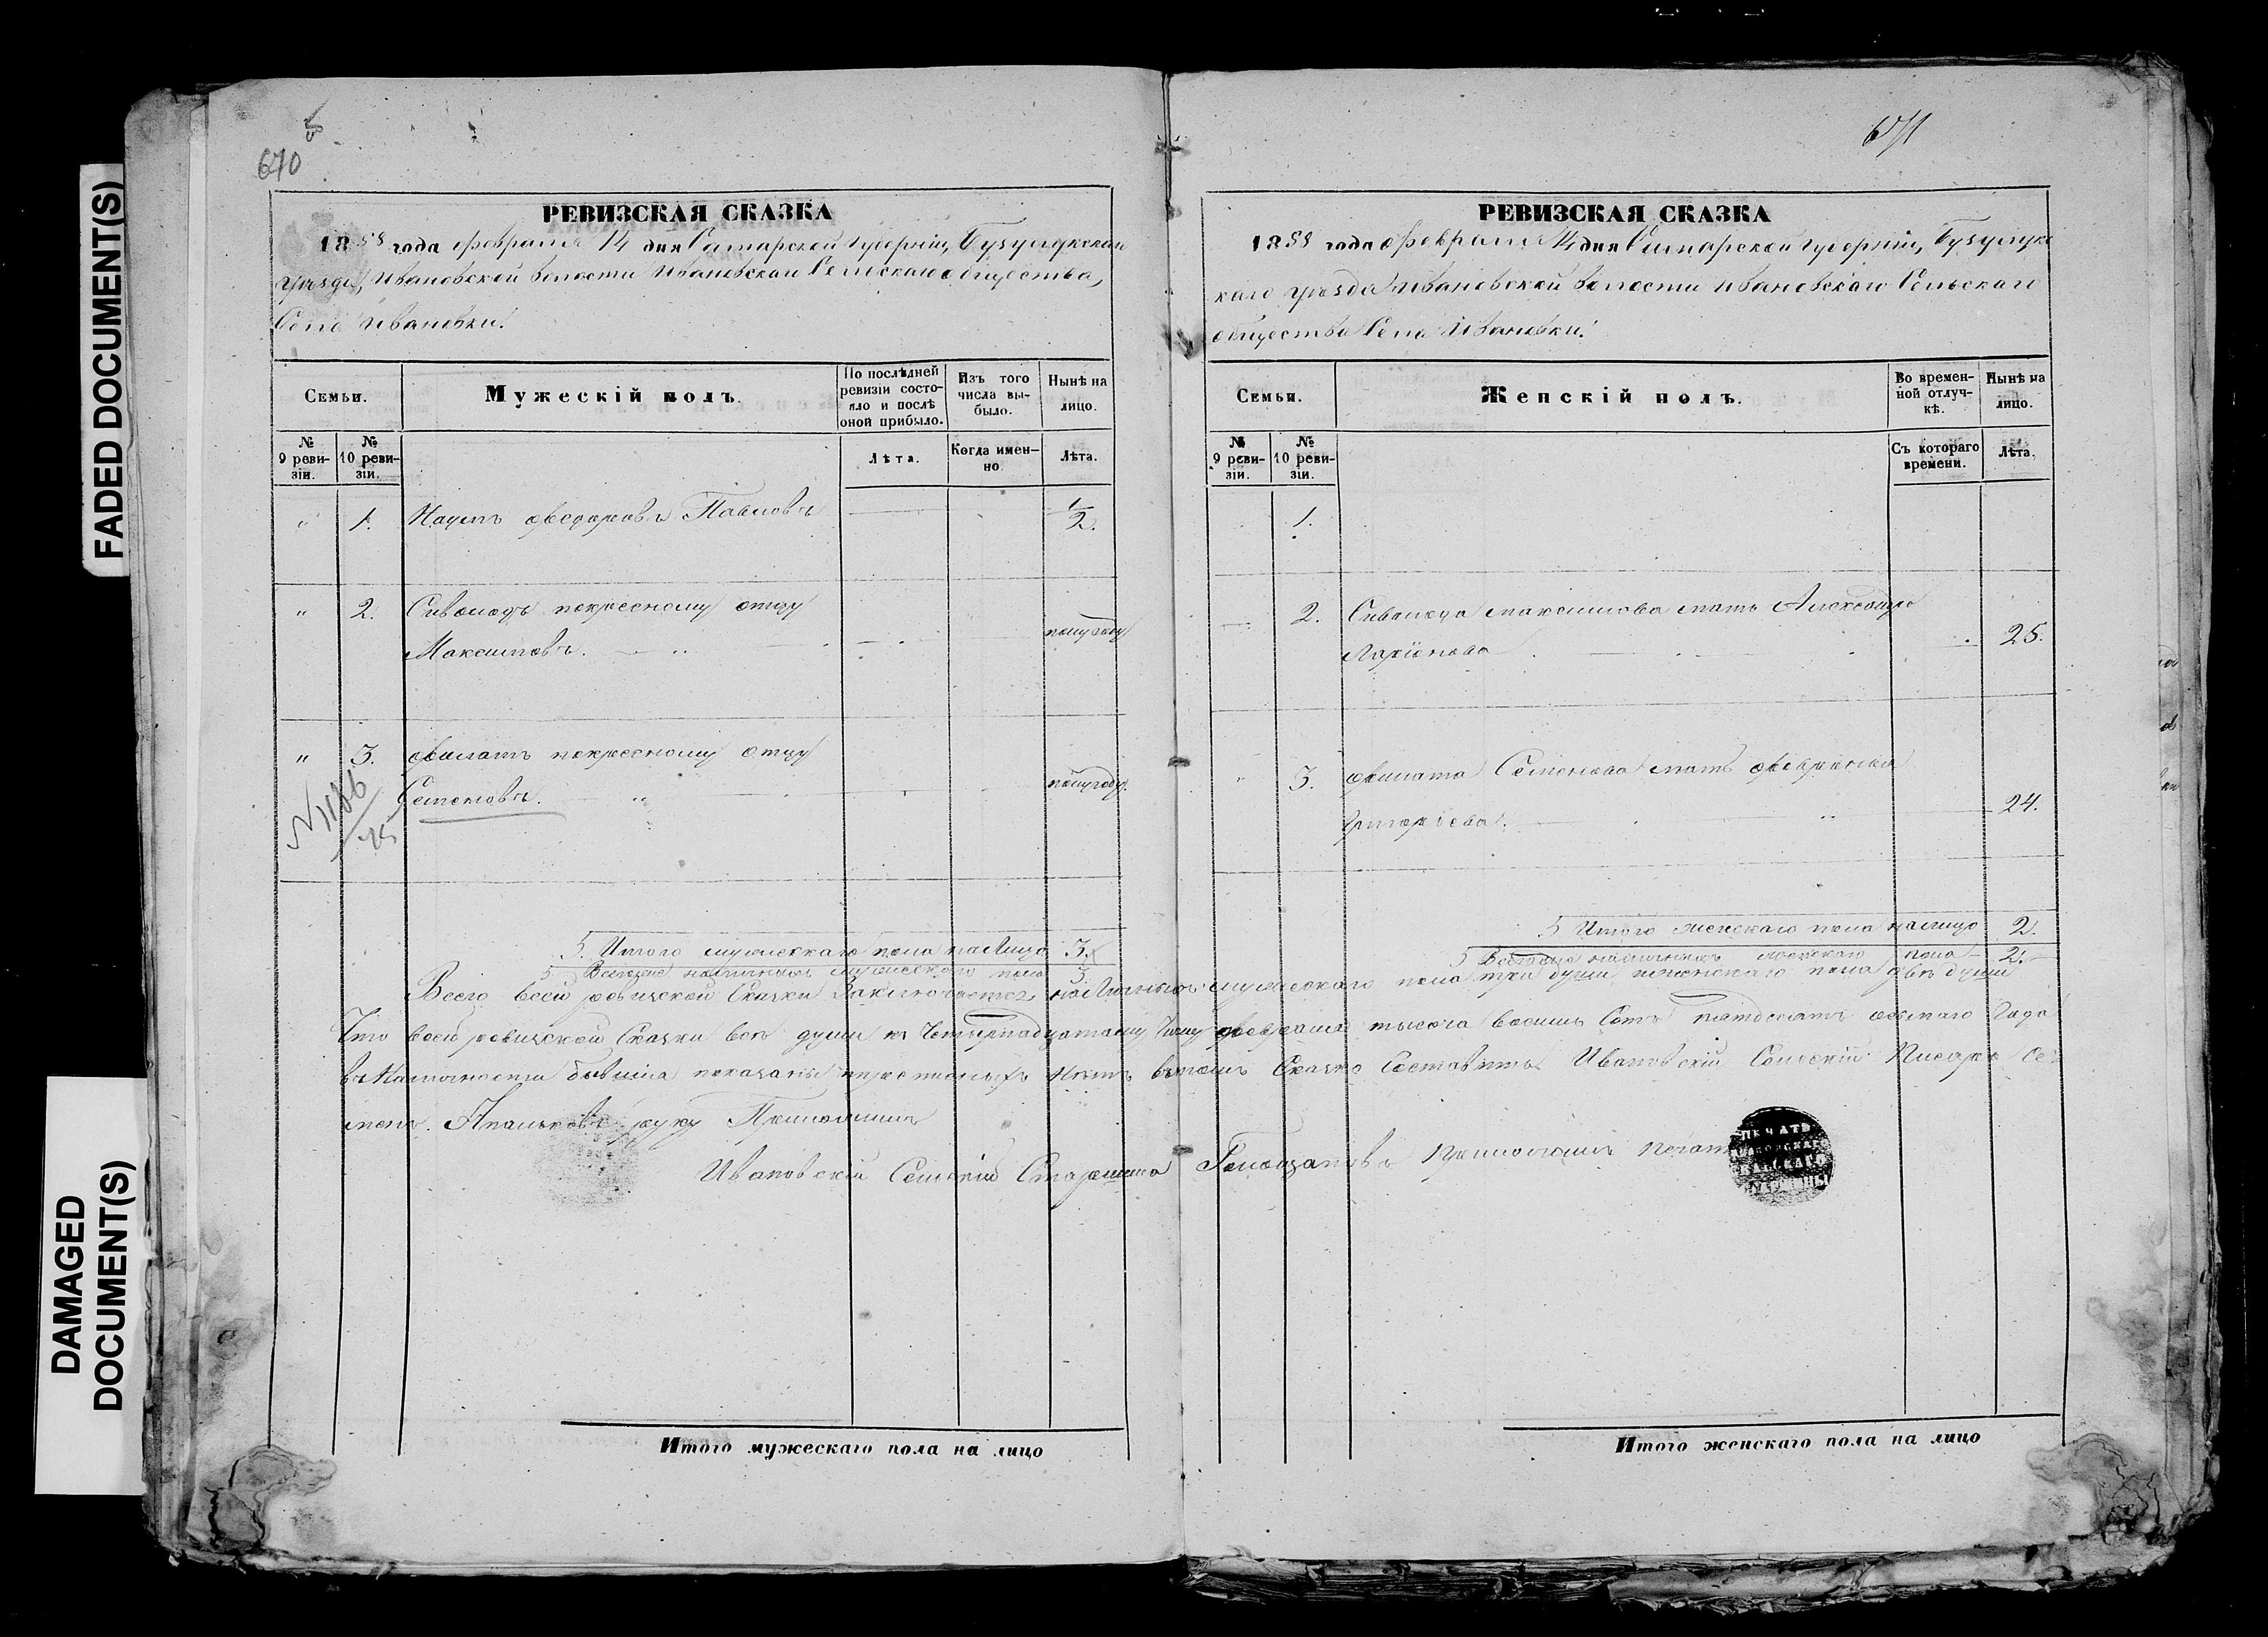 FADED DOCUMENT(S)
DAMAGED
DOCUMENT(S)
670
РЕВИЗСКАЯ СКАЗКА
1858 года февраля 14 дня Самарской губерніи, Бузулукскаго
уѣзда, Ивановской волости Ивановскаго Сельскаго общества,
Села Ивановки.
Семьи.
Мужескій полъ.
По послѣдней ревизіи состояло и послѣ оной прибыло.
Изъ того числа выбыло.
Нынѣ на лицо.
№ 9 ревизіи.
№ 10 ревизіи.
Лѣта.
Когда именно.
Лѣта.
" 1. Наумъ Федоровъ Павловъ 1/2.
" 2. Сиволодъ покресному отцу
Максимовъ. полугоду
" 3. Филатъ покресному отцу
Семеновъ. полугоду.
№ 1186
Итого мужескаго пола на Лицо 3.
Всегоже наличныхъ мужескаго пола 3
671
РЕВИЗСКАЯ СКАЗКА
1858 года февраля 14 дня Самарской губерніи, Бузулукс
каго уѣзда Ивановской волости Ивановскаго Сельскаго
общества Села Ивановки.
Семьи.
Женскій полъ.
Во временной отлучкѣ.
Нынѣ на лицо.
№ 9 ревизіи.
№ 10 ревизіи.
Съ котораго времени.
Лѣта.
1.
2. Сиволода Максимова мать Александра
Ларіонова 25.
" 3. Филата Семенова мать Февронья
Григорьева. 24.
Итого женскаго пола налицо 2.
Всегоже наличныхъ женскаго пола 2.
Всего всей ревизской Сказки Заключается наличныхъ мужескаго пола три души женскаго пола двѣ души
Что всей ревизской Сказки всѣ души къ Четырнадцатому Числу февраля тысяча восимь Сотъ пятдесятъ осьмаго Года
въ Наличности бывшіа показаны прописныхъ нѣтъ въ томъ Сказко Составитъ Ивановскій Сельскій Писарь Се
менъ руку Приложилъ
Ивановскій Сельскій Старшина приложилъ печать
ПЕЧАТЬ
Итого мужескаго пола на лицо
Итого женскаго пола на лицо